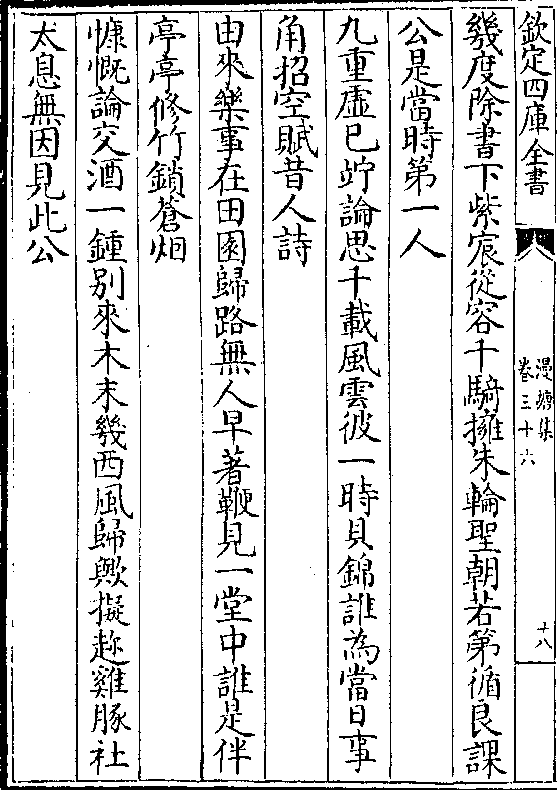 欽定四庫全書
漫塘集
卷三十六
十八
幾度除書下紫宸從容千騎擁朱輪聖朝若第循良課
公是當時第一人
九重虛已竚論思千載風雲彼一時貝錦誰為當日事
角招空賦昔人詩
由來樂事在田園歸路無人早著鞭見一堂中誰是伴
亭亭修竹鎖蒼烟
慷慨論交酒一鍾别來木末幾西風歸歟擬趂雞豚社
太息無因見此公